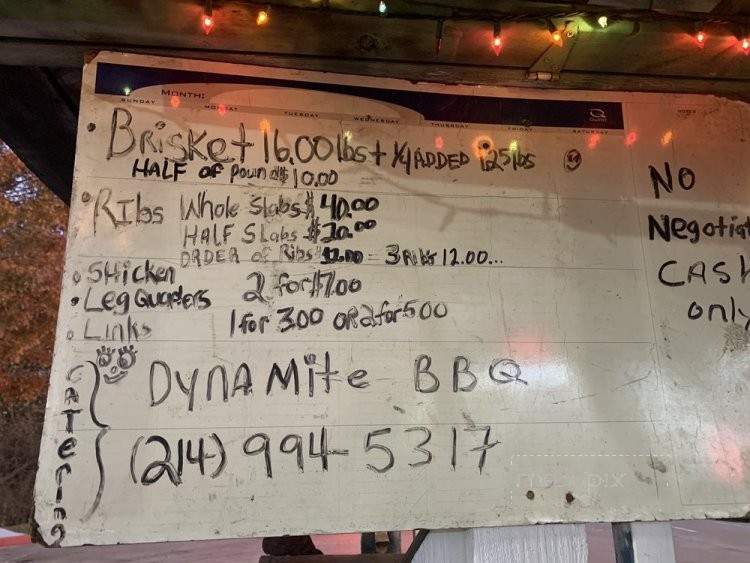 MONTH:
SUNDAY MONDAY TUESDAY WEDNESDAY THURSDAY FRIDAY SATURDAY
Brisket 16.00 lbs + 1/4 ADDED 1.25 lbs
HALF of pound $ 10.00
Ribs Whole Slabs $ 40.00
HALF Slabs $ 20.00
ORDER of Ribs $ 12.00 = 3 Ribs 12.00...
SHicken
Leg Quarters 2 for $7.00
Links 1 for 300 OR 2 for 500
CATering
DYNAMite BBQ
(214) 994-5317
NO
Negotiat
CASH
only